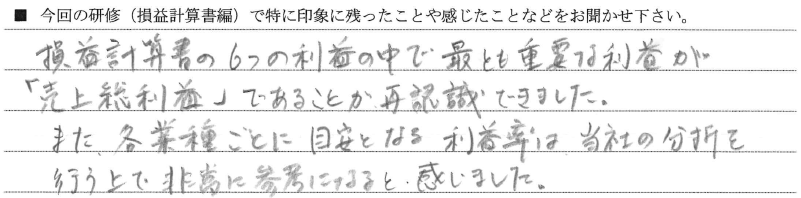 ■ 今回の研修（損益計算書編）で特に印象に残ったことや感じたことなどをお聞かせ下さい。
損益計算書の6つの利益の中で最とも重要な利益が
「売上総利益」であることが再認識できました。
また、各業種ごとに目安となる利益率は当社の分析を
行う上で非常に参考になると感じました。